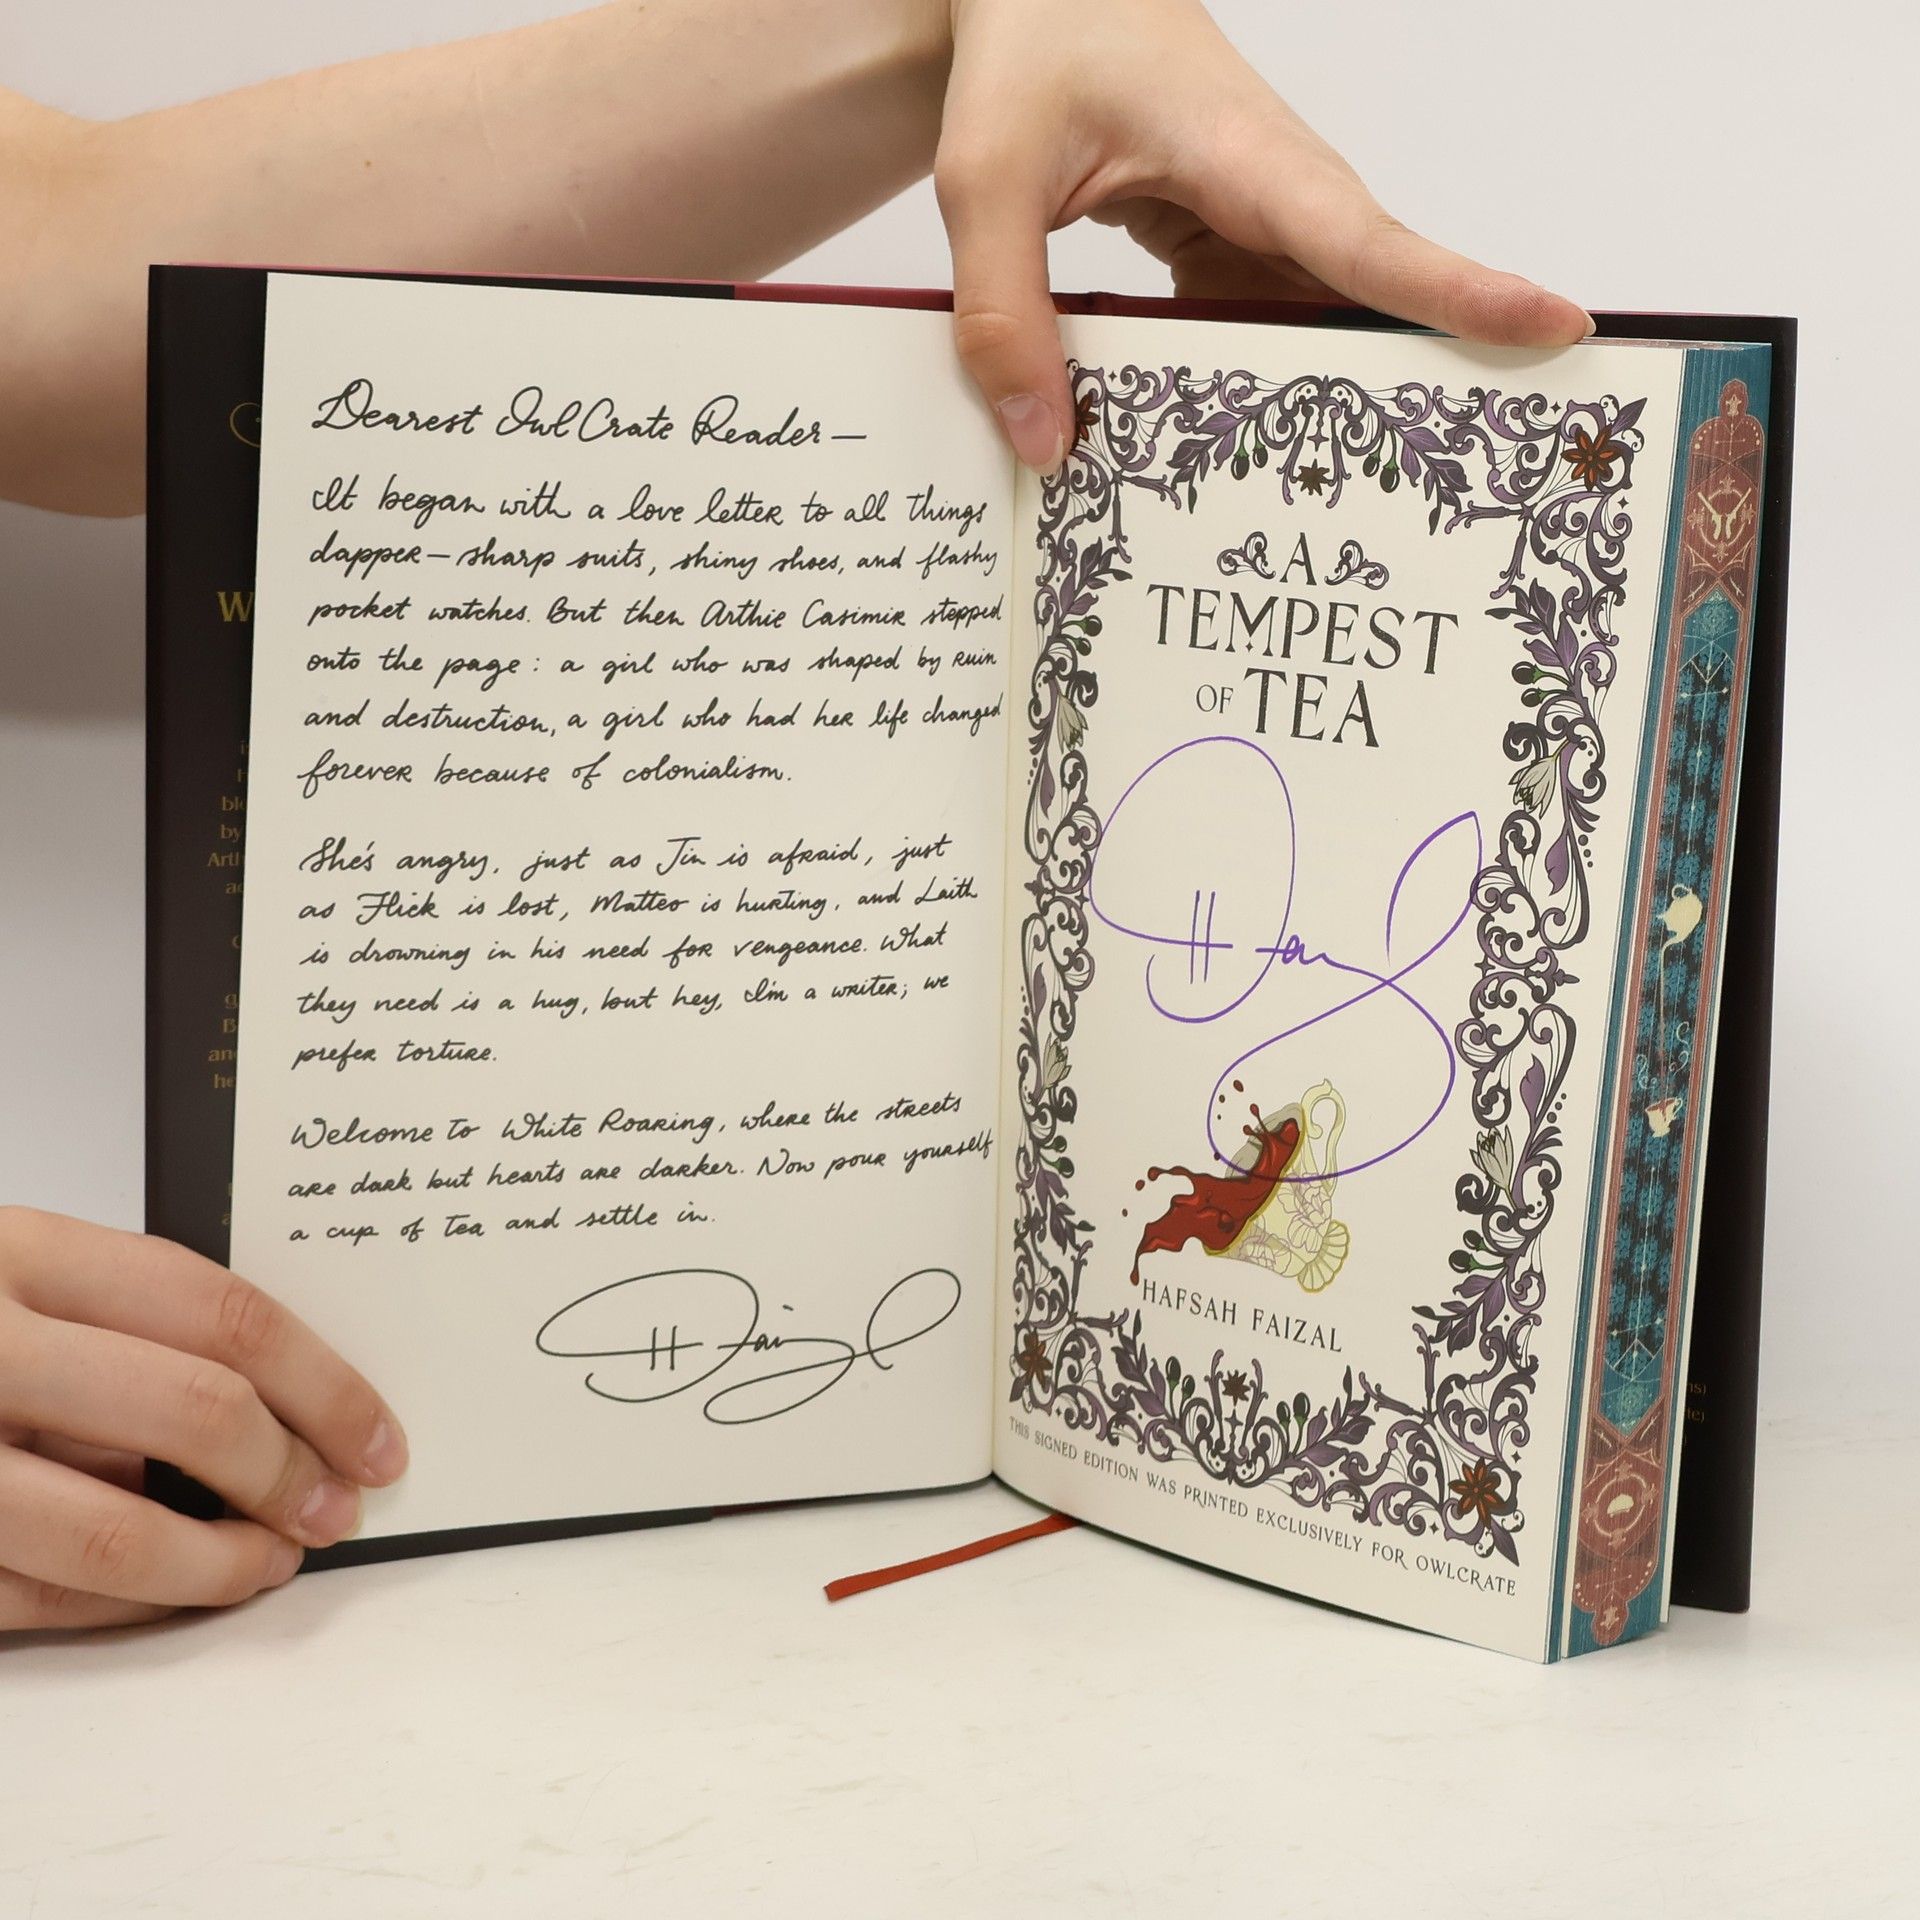 Dearest OwlCrate Reader—
It began with a love letter to all things
dapper—sharp suits, shiny shoes, and flashy
pocket watches. But then Arthie Casimir stepped
onto the page: a girl who was shaped by ruin
and destruction, a girl who had her life changed
forever because of colonialism.
She's angry, just as Jin is afraid, just
as Flick is lost, Matteo is hurting, and Laith
is drowning in his need for vengeance. What
they need is a hug, but hey, I'm a writer; we
prefer torture.
Welcome to White Roaring, where the streets
are dark but hearts are darker. Now pour yourself
a cup of tea and settle in.
H Faizal
A
TEMPEST
OF TEA
H Faizal
HAFSAH FAIZAL
THIS SIGNED EDITION WAS PRINTED EXCLUSIVELY FOR OWLCRATE